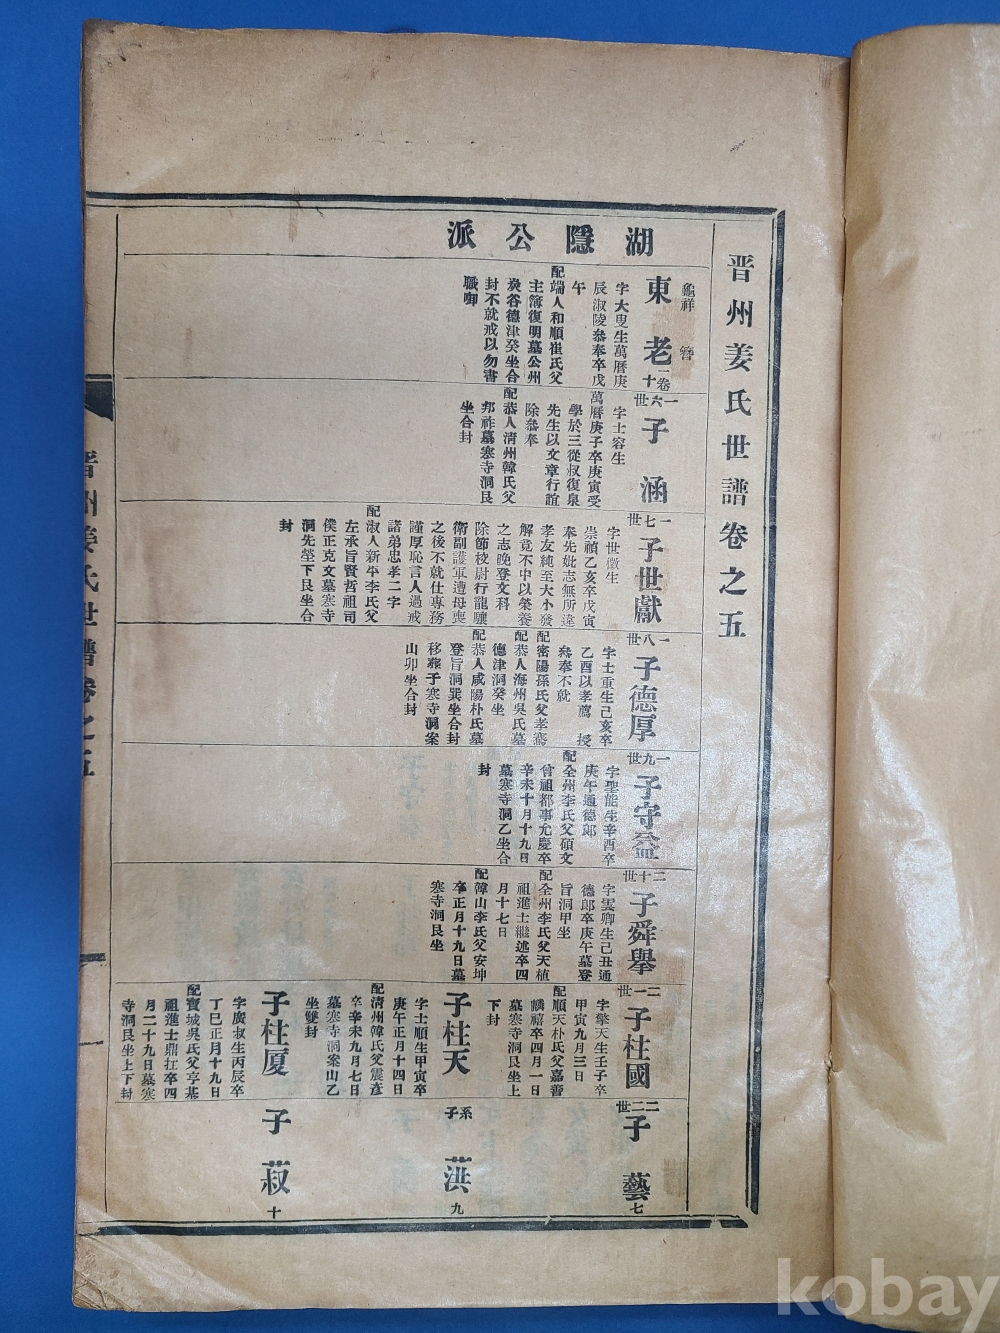 晋州姜氏世譜卷之五
湖隱公派
龜祥
東老
一卷
十
字大叟生萬曆庚
辰淑陵叅奉卒戊
午
配端人和順崔氏父
主簿復明墓公州
炭谷德津癸坐合
封不就戒以勿書
職啣
一六世
子涵
字士容生
萬曆庚子卒庚寅受
學於三從叔復泉
先生以文章行誼
除叅奉
配恭人清州韓氏父
邦祚墓寒寺洞艮
坐合封
一七世
子世獻
字世徵生
崇禎乙亥卒戊寅
奉先妣志無所違
孝友純至大小發
解竟不中以榮養
之志晚登文科
除節校尉行龍驤
衛副護軍遭母喪
之後不就仕專務
謹厚恥言人過戒
諸弟忠孝二字
配淑人新平李氏父
左承旨賢哲祖司
僕正克文墓寒寺
洞先塋下艮坐合
封
一八世
子德厚
字士重生己亥卒
乙酉以孝薦 授
叅奉不就
配密陽孫氏父孝騫
配恭人海州吳氏墓
德津洞癸坐
配恭人咸陽朴氏墓
登旨洞巽坐合封
移葬于寒寺洞案
山卯坐合封
一九世
子守益
字聖能生辛酉卒
庚午通德郎
配全州李氏父碩文
曾祖都事允慶卒
辛未十月十九日
墓寒寺洞乙坐合
封
二十世
子舜舉
字雲卿生己丑通
德郎卒庚午墓登
旨洞甲坐
配全州李氏父天植
祖進士繼述卒四
月十七日
配韓山李氏父安坤
卒正月十九日墓
寒寺洞艮坐
二一世
子柱國
字擎天生壬子卒
甲寅九月三日
配順天朴氏父嘉善
麟禧卒四月一日
墓寒寺洞艮坐上
下封
子柱天
字士順生甲寅卒
庚午正月十四日
配清州韓氏父震彥
卒辛未九月七日
墓寒寺洞案山乙
坐雙封
子柱厦
字廣叔生丙辰卒
丁巳正月十九日
配寶城吳氏父亨基
祖進士鼎扛卒四
月二十九日墓寒
寺洞艮坐上下封
二二世
子藝
七
系子
蕻
九
子菽
十
晋州姜氏世譜卷之五
kobay